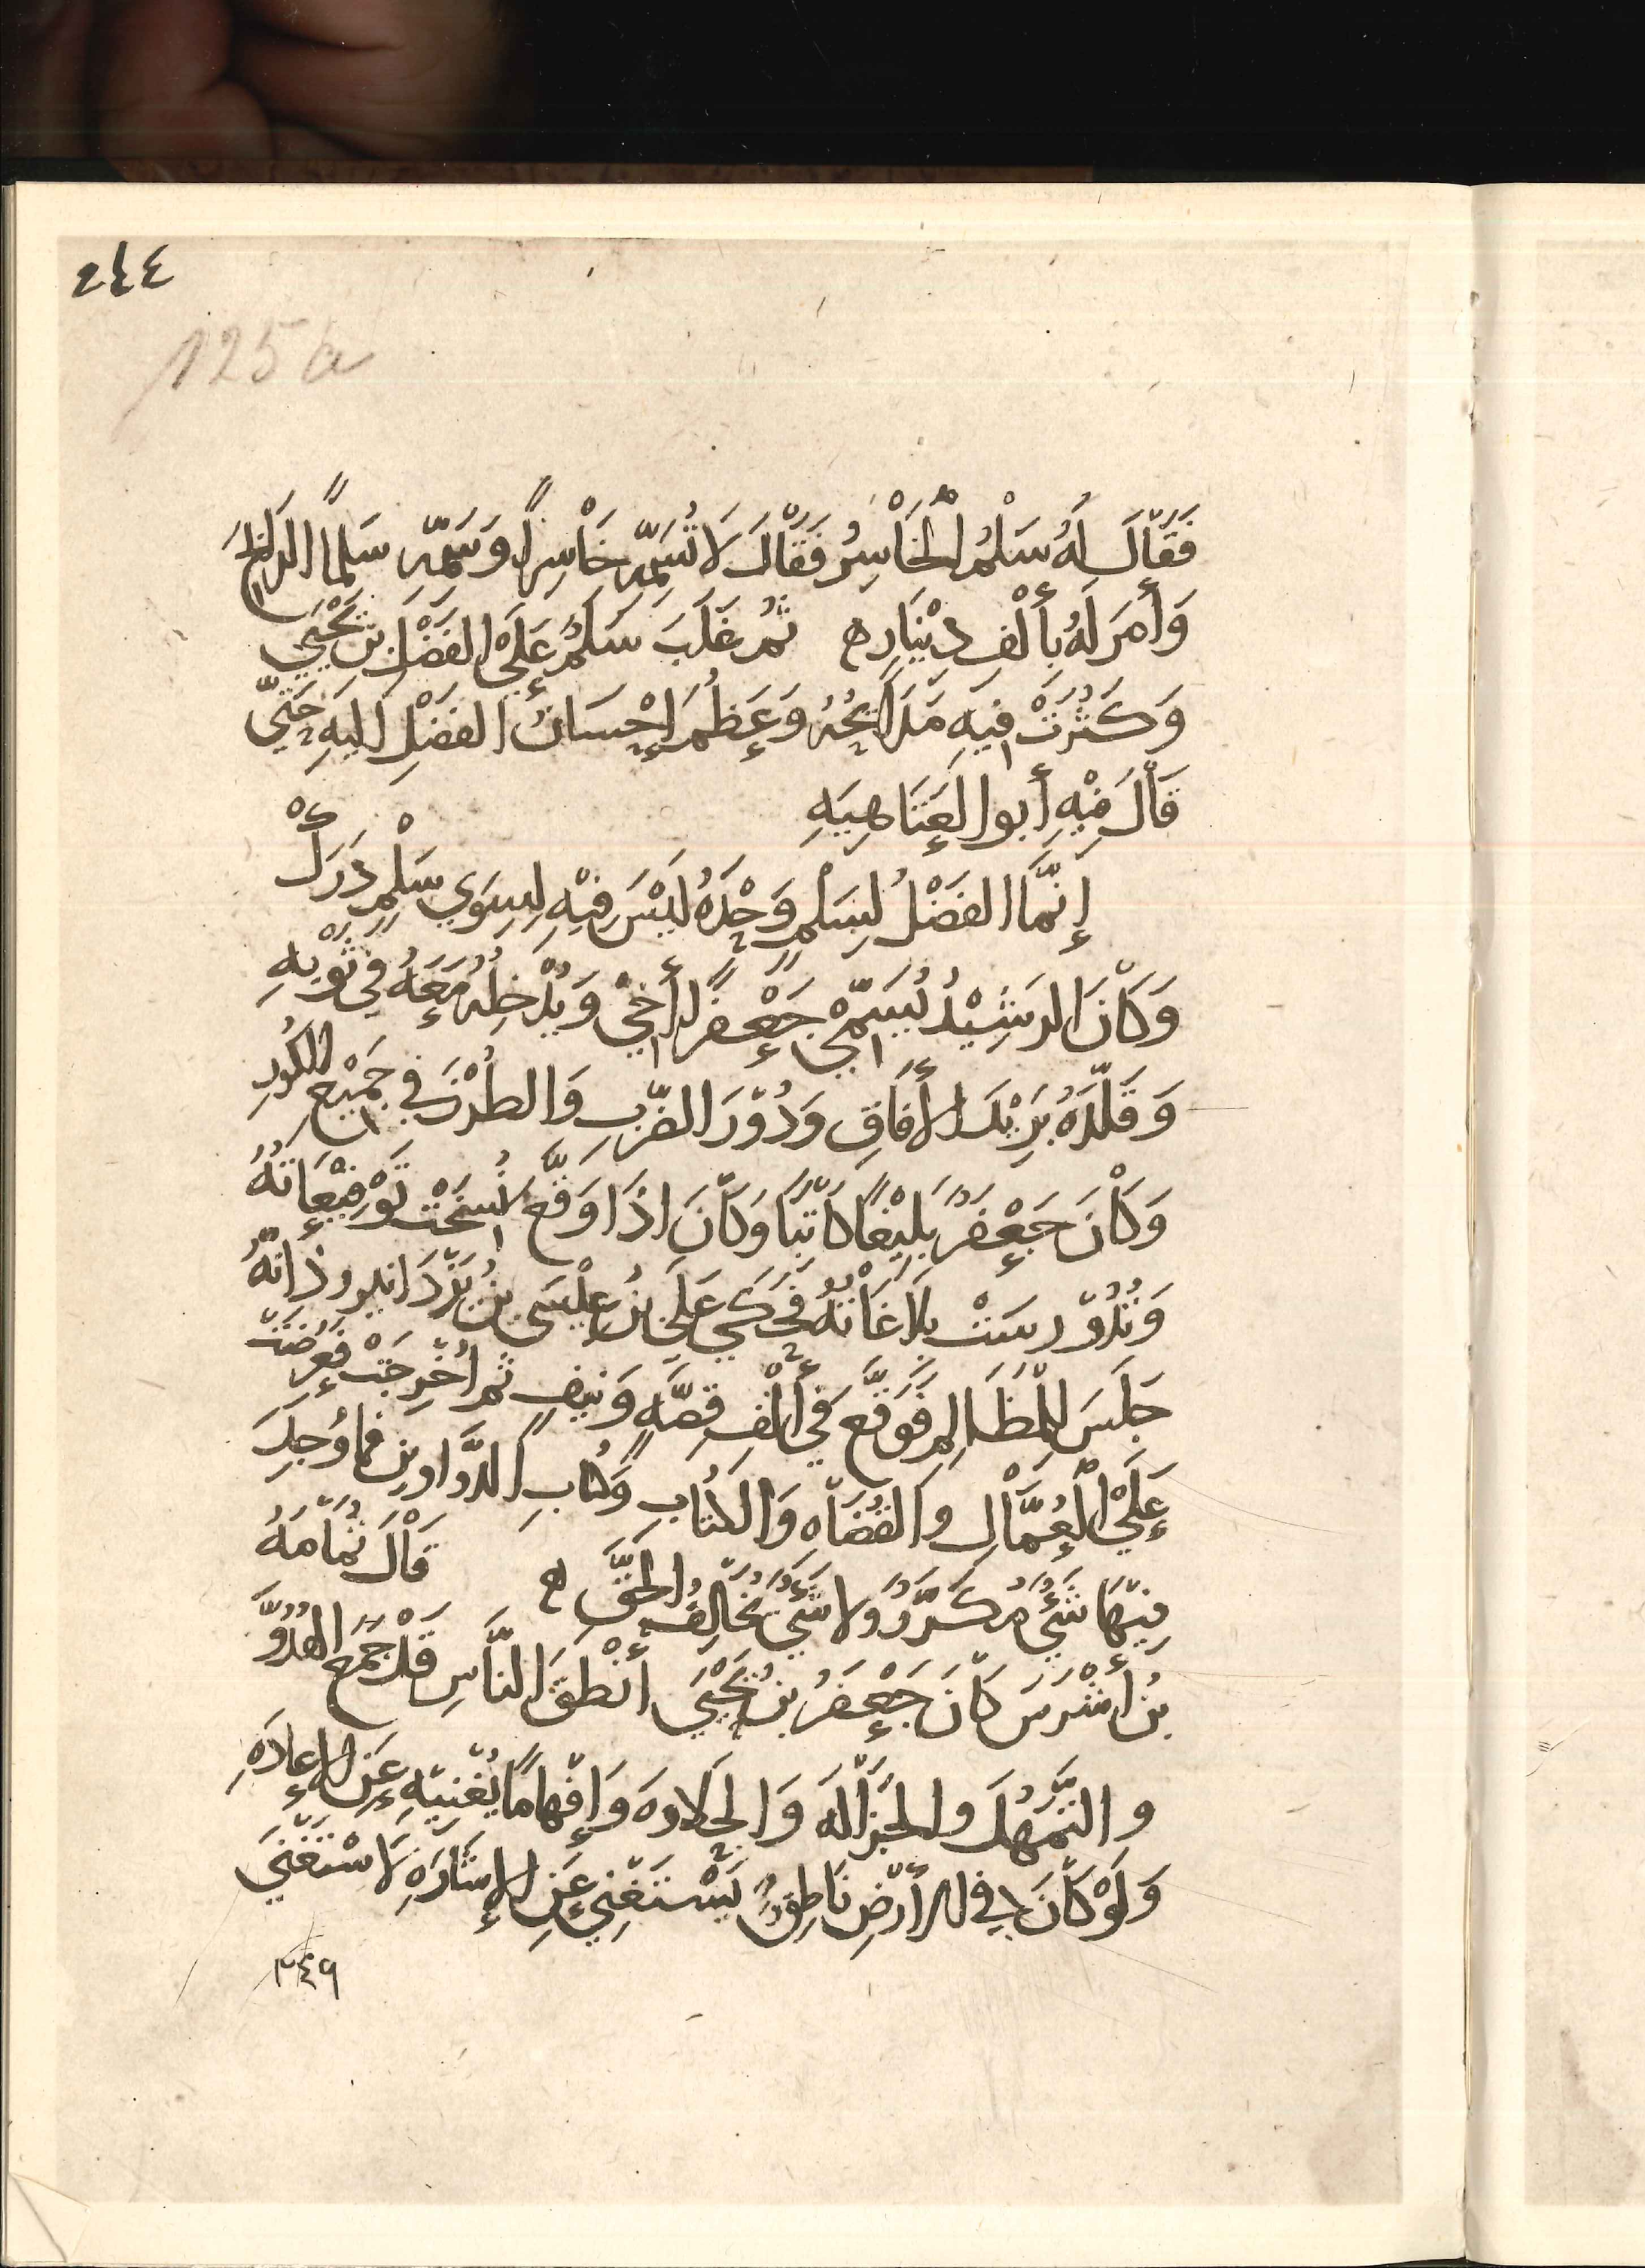 ٢٤٤
125a
فَقَالَ لَهُ سَلْمُ الْخَاسِرُ فَقَالَ لَا تُسَمِّهِ خَاسِراً وَسَمِّهِ سَلماً الرابحَ
وَأَمَرَ لَهُ بأَلْفِ دِيْنَارٍ ه ثُم غَلَبَ سَلمٌ عَلَى الفَضْلِ بْنِ يَحْيَى
وَكَثُرَتْ فِيهِ مَدَائِحُهُ وَعَظُمَ إِحْسَانُ الفَضْلِ اليهِ حَتّى
قَالَ فِيْهِ أَبو العَتَاهِيَهِ
إِنّمَا الفَضْلُ لِسَلمٍ وَحْدَهُ لَيْسَ فِيْهِ لِسِوَى سَلْمٍ دَرَكْ
وَكَانَ الرشِيْدُ يُسَمِّي جَعْفَراً أَخي وَيُدْخِلُهُ مَعَهُ في ثَوْبِهِ
وَقَلّدَهُ بَرِيْدَ الأَفاقِ وَدُوْرَ الضّربِ وَالطُرْزَ في جَميْعِ الكُورِ
وَكَانَ جَعْفَرُ بَلِيْغًا كَاتِبًا وَكَانَ اذَا وَقّعَ نُسِخَتْ تَوْقِيْعَاتهُ
وَتُدُوّرسَتْ بلَاغَاتُهُ فَحَكَى عَلي بن عِيْسَى بنُ يَزْدَانيروذَ انّهُ
جَلَسَ لِلْمَظَالِمِ فَوَقّعَ في أَلْفِ قصّهٍ وَنيفٍ ثم اُخْرجَتْ فَعُرضَتْ
عَلَى الْعُمّالِ والقُضَاهِ وَالكتّابِ وَكُتابِ الدّوَاوينِ فما وُجِدَ
مِنْهَا شَيْءٌ مُكَرّرٌ وَلا شَيءٌ يُخَالِفُ الحَقَّ ه قَالَ ثُمَامَهُ
بنُ أَشْرَسَ كَانَ جَعْفَرُ بنُ يَحْيَى أنْطَقَ النّاسِ قَدْ جَمَعَ الهُدُوَّ
والتّمهُلَ والجَزَالَه وَالحَلاوهَ وَإِفْهَامًا يُغْنيْهِ عَن الإعادَهِ
وَلَوْ كَانَ في الأَرْضِ نَاطِقٌ يَسْتَغْنِي عَنِ الإِشَارَهِ لَاسْتَغْنَى
٣٤٩